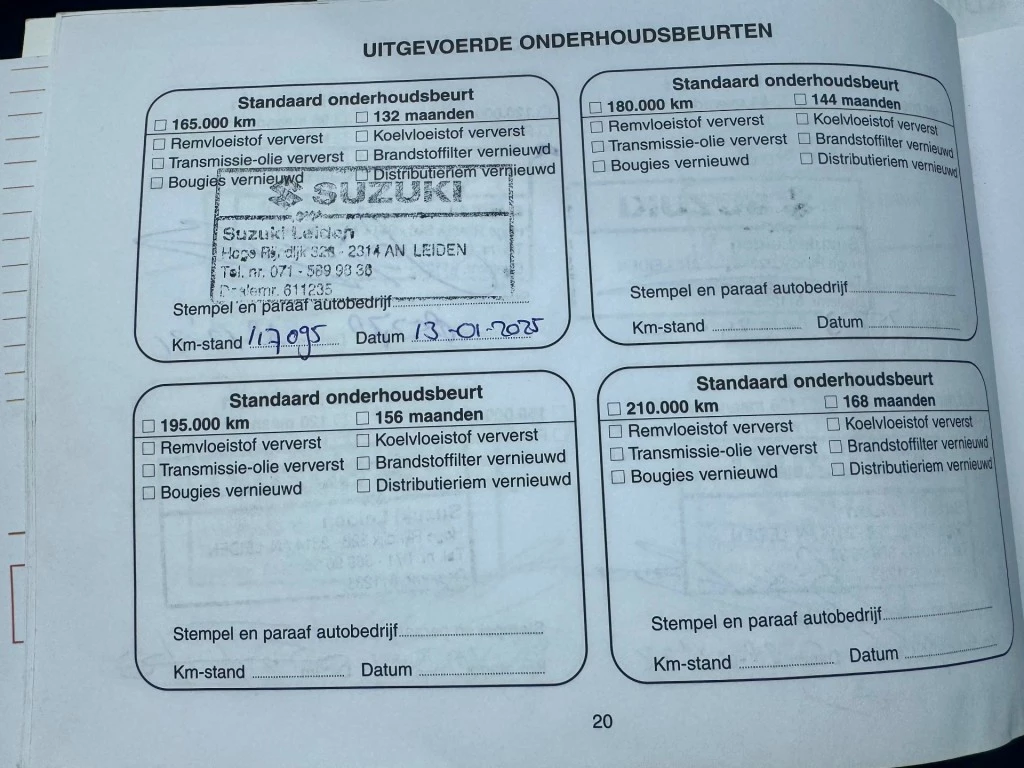 UITGEVOERDE ONDERHOUDSBEURTEN
Standaard onderhoudsbeurt
165.000 km 132 maanden
Remvloeistof ververst Koelvloeistof ververst
Transmissie-olie ververst Brandstoffilter vernieuwd
Bougies vernieuwd Distributieriem vernieuwd
SUZUKI
Suzuki Leiden
Hoge Rijndijk 328 - 2314 AN LEIDEN
Tel. nr. 071 - 589 93 36
Dealernr. 611235
Stempel en paraaf autobedrijf
Km-stand 117095 Datum 13-01-2025
Standaard onderhoudsbeurt
180.000 km 144 maanden
Remvloeistof ververst Koelvloeistof ververst
Transmissie-olie ververst Brandstoffilter vernieuwd
Bougies vernieuwd Distributieriem vernieuwd
Stempel en paraaf autobedrijf
Km-stand Datum
Standaard onderhoudsbeurt
195.000 km 156 maanden
Remvloeistof ververst Koelvloeistof ververst
Transmissie-olie ververst Brandstoffilter vernieuwd
Bougies vernieuwd Distributieriem vernieuwd
Stempel en paraaf autobedrijf
Km-stand Datum
Standaard onderhoudsbeurt
210.000 km 168 maanden
Remvloeistof ververst Koelvloeistof ververst
Transmissie-olie ververst Brandstoffilter vernieuwd
Bougies vernieuwd Distributieriem vernieuwd
Stempel en paraaf autobedrijf
Km-stand Datum
20